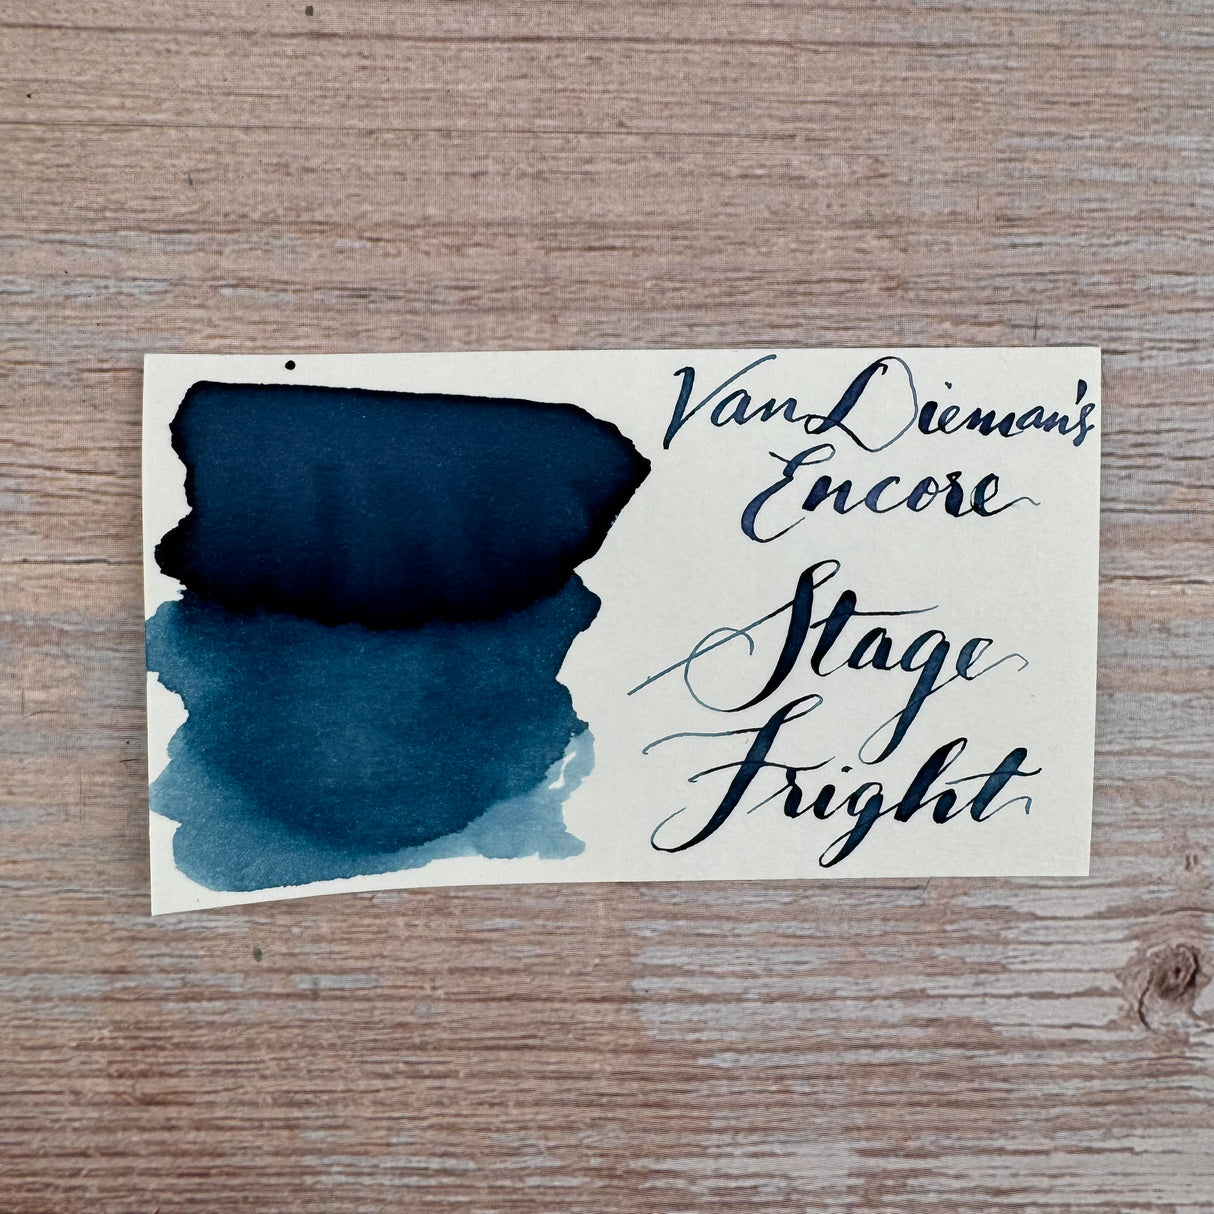 Van Dieman's
Encore
Stage
Fright